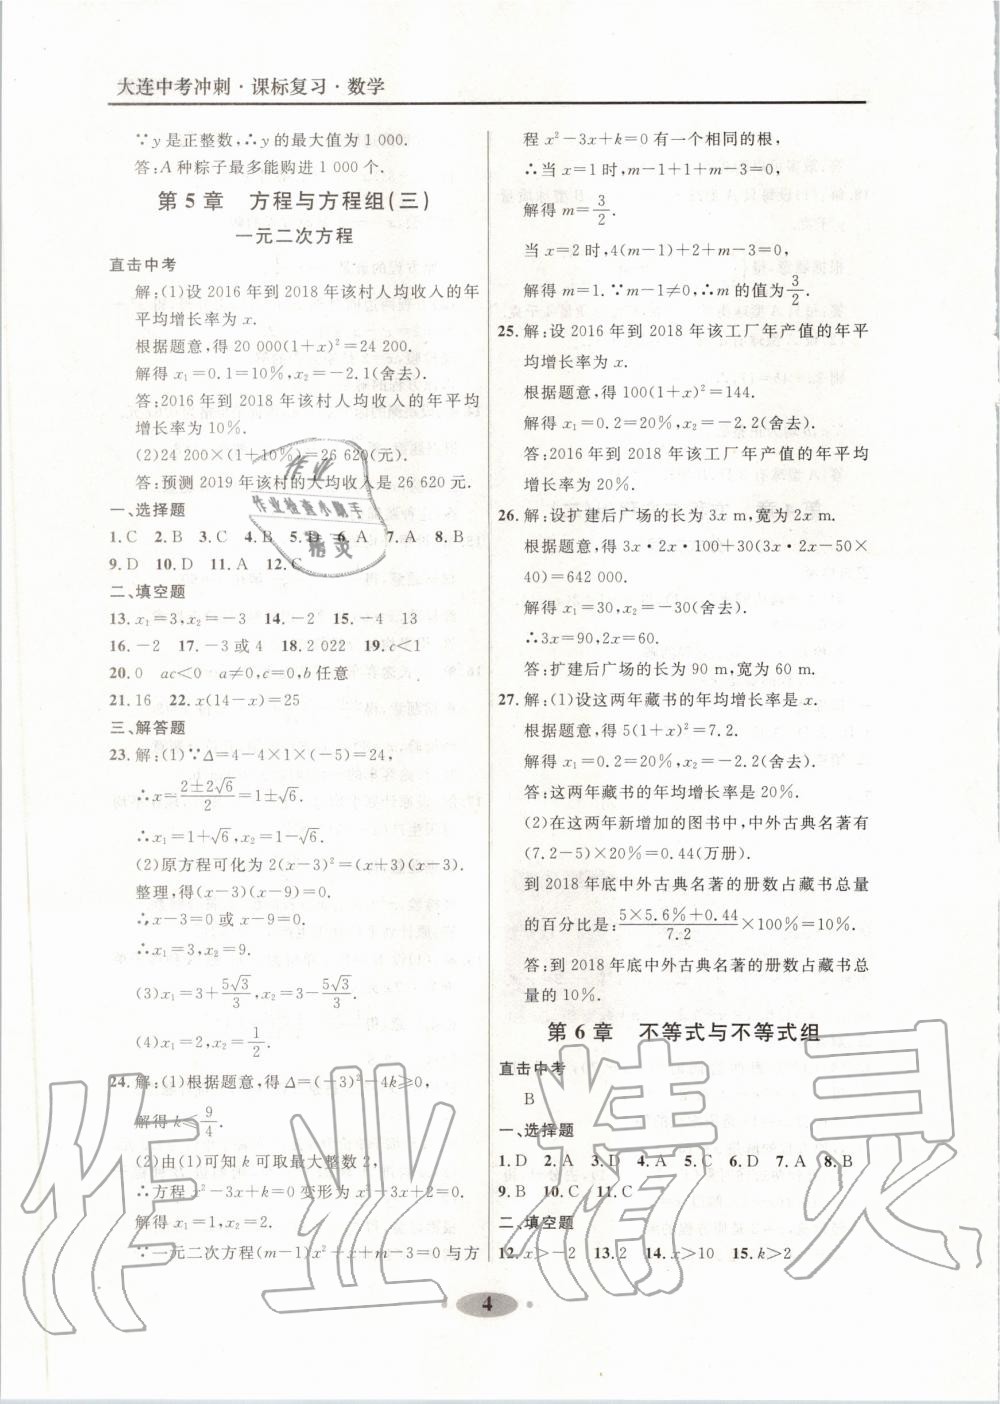 大连中考冲刺·课标复习·数学
∵y是正整数,∴y的最大值为1 000.
答:A种粽子最多能购进1 000个.
第5章 方程与方程组(三)
一元二次方程
直击中考
解:(1)设2016年到2018年该村人均收入的年
平均增长率为x.
根据题意,得20 000(1+x)²=24 200.
解得x₁=0.1=10%,x₂=-2.1(舍去).
答:2016年到2018年该村人均收入的年平均
增长率为10%.
(2)24 200×(1+10%)=26 620(元).
答:预测2019年该村的人均收入是26 620元.
一、选择题
1.C 2.B 3.C 4.B 5.D 6.A 7.A 8.B
9.D 10.D 11.A 12.C
二、填空题
13.x₁=3,x₂=-3 14.-2 15.-4 13
16.-2 17.-3或4 18.2 022 19.c<1
20.0 ac<0 a≠0,c=0,b任意
21.16 22.x(14-x)=25
三、解答题
23.解:(1)∵Δ=4-4×1×(-5)=24,
∴x=(2±2√6)/2=1±√6.
∴x₁=1+√6,x₂=1-√6.
(2)原方程可化为2(x-3)²=(x+3)(x-3).
整理,得(x-3)(x-9)=0.
∴x-3=0或x-9=0.
∴x₁=3,x₂=9.
(3)x₁=3+5√3/3,x₂=3-5√3/3.
(4)x₁=2,x₂=1/2.
24.解:(1)根据题意,得Δ=(-3)²-4k≥0,
解得k≤9/4.
(2)由(1)可知k可取最大整数2,
∴方程x²-3x+k=0变形为x²-3x+2=0.
解得x₁=1,x₂=2.
∵一元二次方程(m-1)x²+x+m-3=0与方
程x²-3x+k=0有一个相同的根,
∴当x=1时,m-1+1+m-3=0,
解得m=3/2.
当x=2时,4(m-1)+2+m-3=0,
解得m=1.∵m-1≠0,∴m的值为3/2.
25.解:设2016年到2018年该工厂年产值的年平
均增长率为x.
根据题意,得100(1+x)²=144.
解得x₁=0.2=20%,x₂=-2.2(舍去).
答:2016年到2018年该工厂年产值的年平均
增长率为20%.
26.解:设扩建后广场的长为3x m,宽为2x m.
根据题意,得3x·2x·100+30(3x·2x-50×
40)=642 000.
解得x₁=30,x₂=-30(舍去).
∴3x=90,2x=60.
答:扩建后广场的长为90 m,宽为60 m.
27.解:(1)设这两年藏书的年均增长率是x.
根据题意,得5(1+x)²=7.2.
解得x₁=0.2=20%,x₂=-2.2(舍去).
答:这两年藏书的年均增长率是20%.
(2)在这两年新增加的图书中,中外古典名著有
(7.2-5)×20%=0.44(万册).
到2018年底中外古典名著的册数占藏书总量
的百分比是:(5×5.6%+0.44)/7.2×100%=10%.
答:到2018年底中外古典名著的册数占藏书总
量的10%.
第6章 不等式与不等式组
直击中考
B
一、选择题
1.D 2.A 3.D 4.A 5.C 6.D 7.A 8.B
9.B 10.C 11.C
二、填空题
12.x>-2 13.2 14.x>10 15.k>2
4
作业
作业检查小助手
精灵
作业精灵